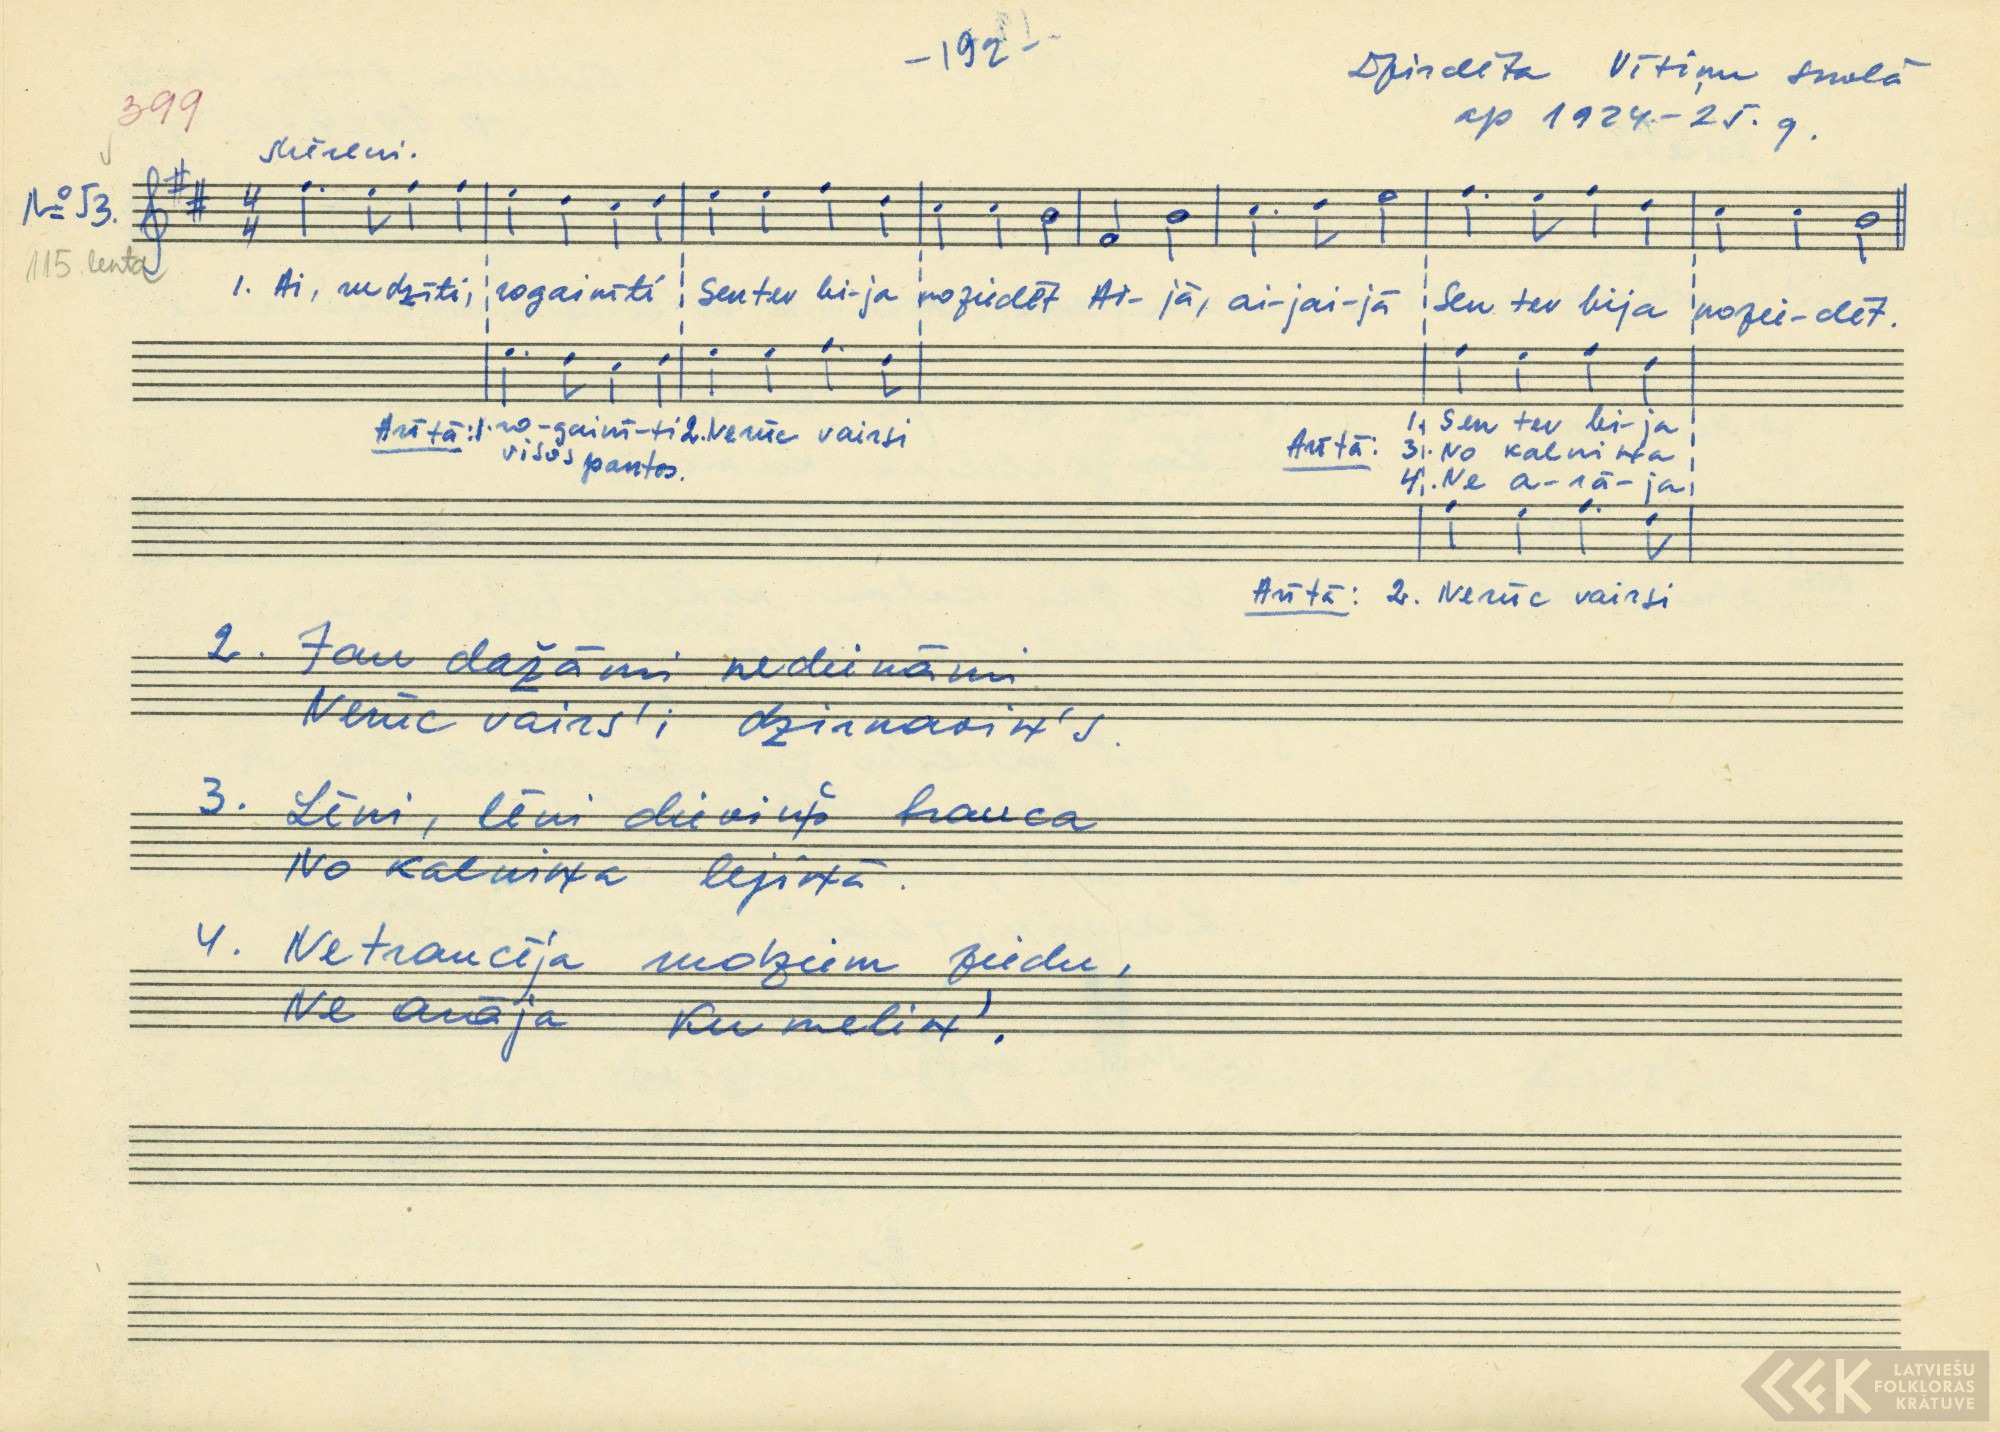 -192-
Dzirdēta Vītiņu skolā
ap 1924.-25. g.
399
skēreni.
№ 53.
4
4
115. lenta
1. Ai, rudzīti, rogainīti Sen tev bi-ja noziedēt Ai-jā, ai-jai-jā Sen tev bija nozie-dēt.
Arītā: 1. ro-gainī-ti 2. Nerūc vairsi
visos pantos.
Arītā: 1. Sen tev bi-ja
3. No kalniņa
4. Ne a-rā-ja
Arītā: 2. Nerūc vairsi
2. Jau dažāmi nedienāmi
Nerūc vairs'i dzirnaviņ's.
3. Lēni, lēni dieviņš brauca
No kalniņa lejiņā.
4. Netraucēja rudziem ziedu,
Ne arāja kumeliņ'.
LATVIEŠU
FOLKLORAS
KRĀTUVE